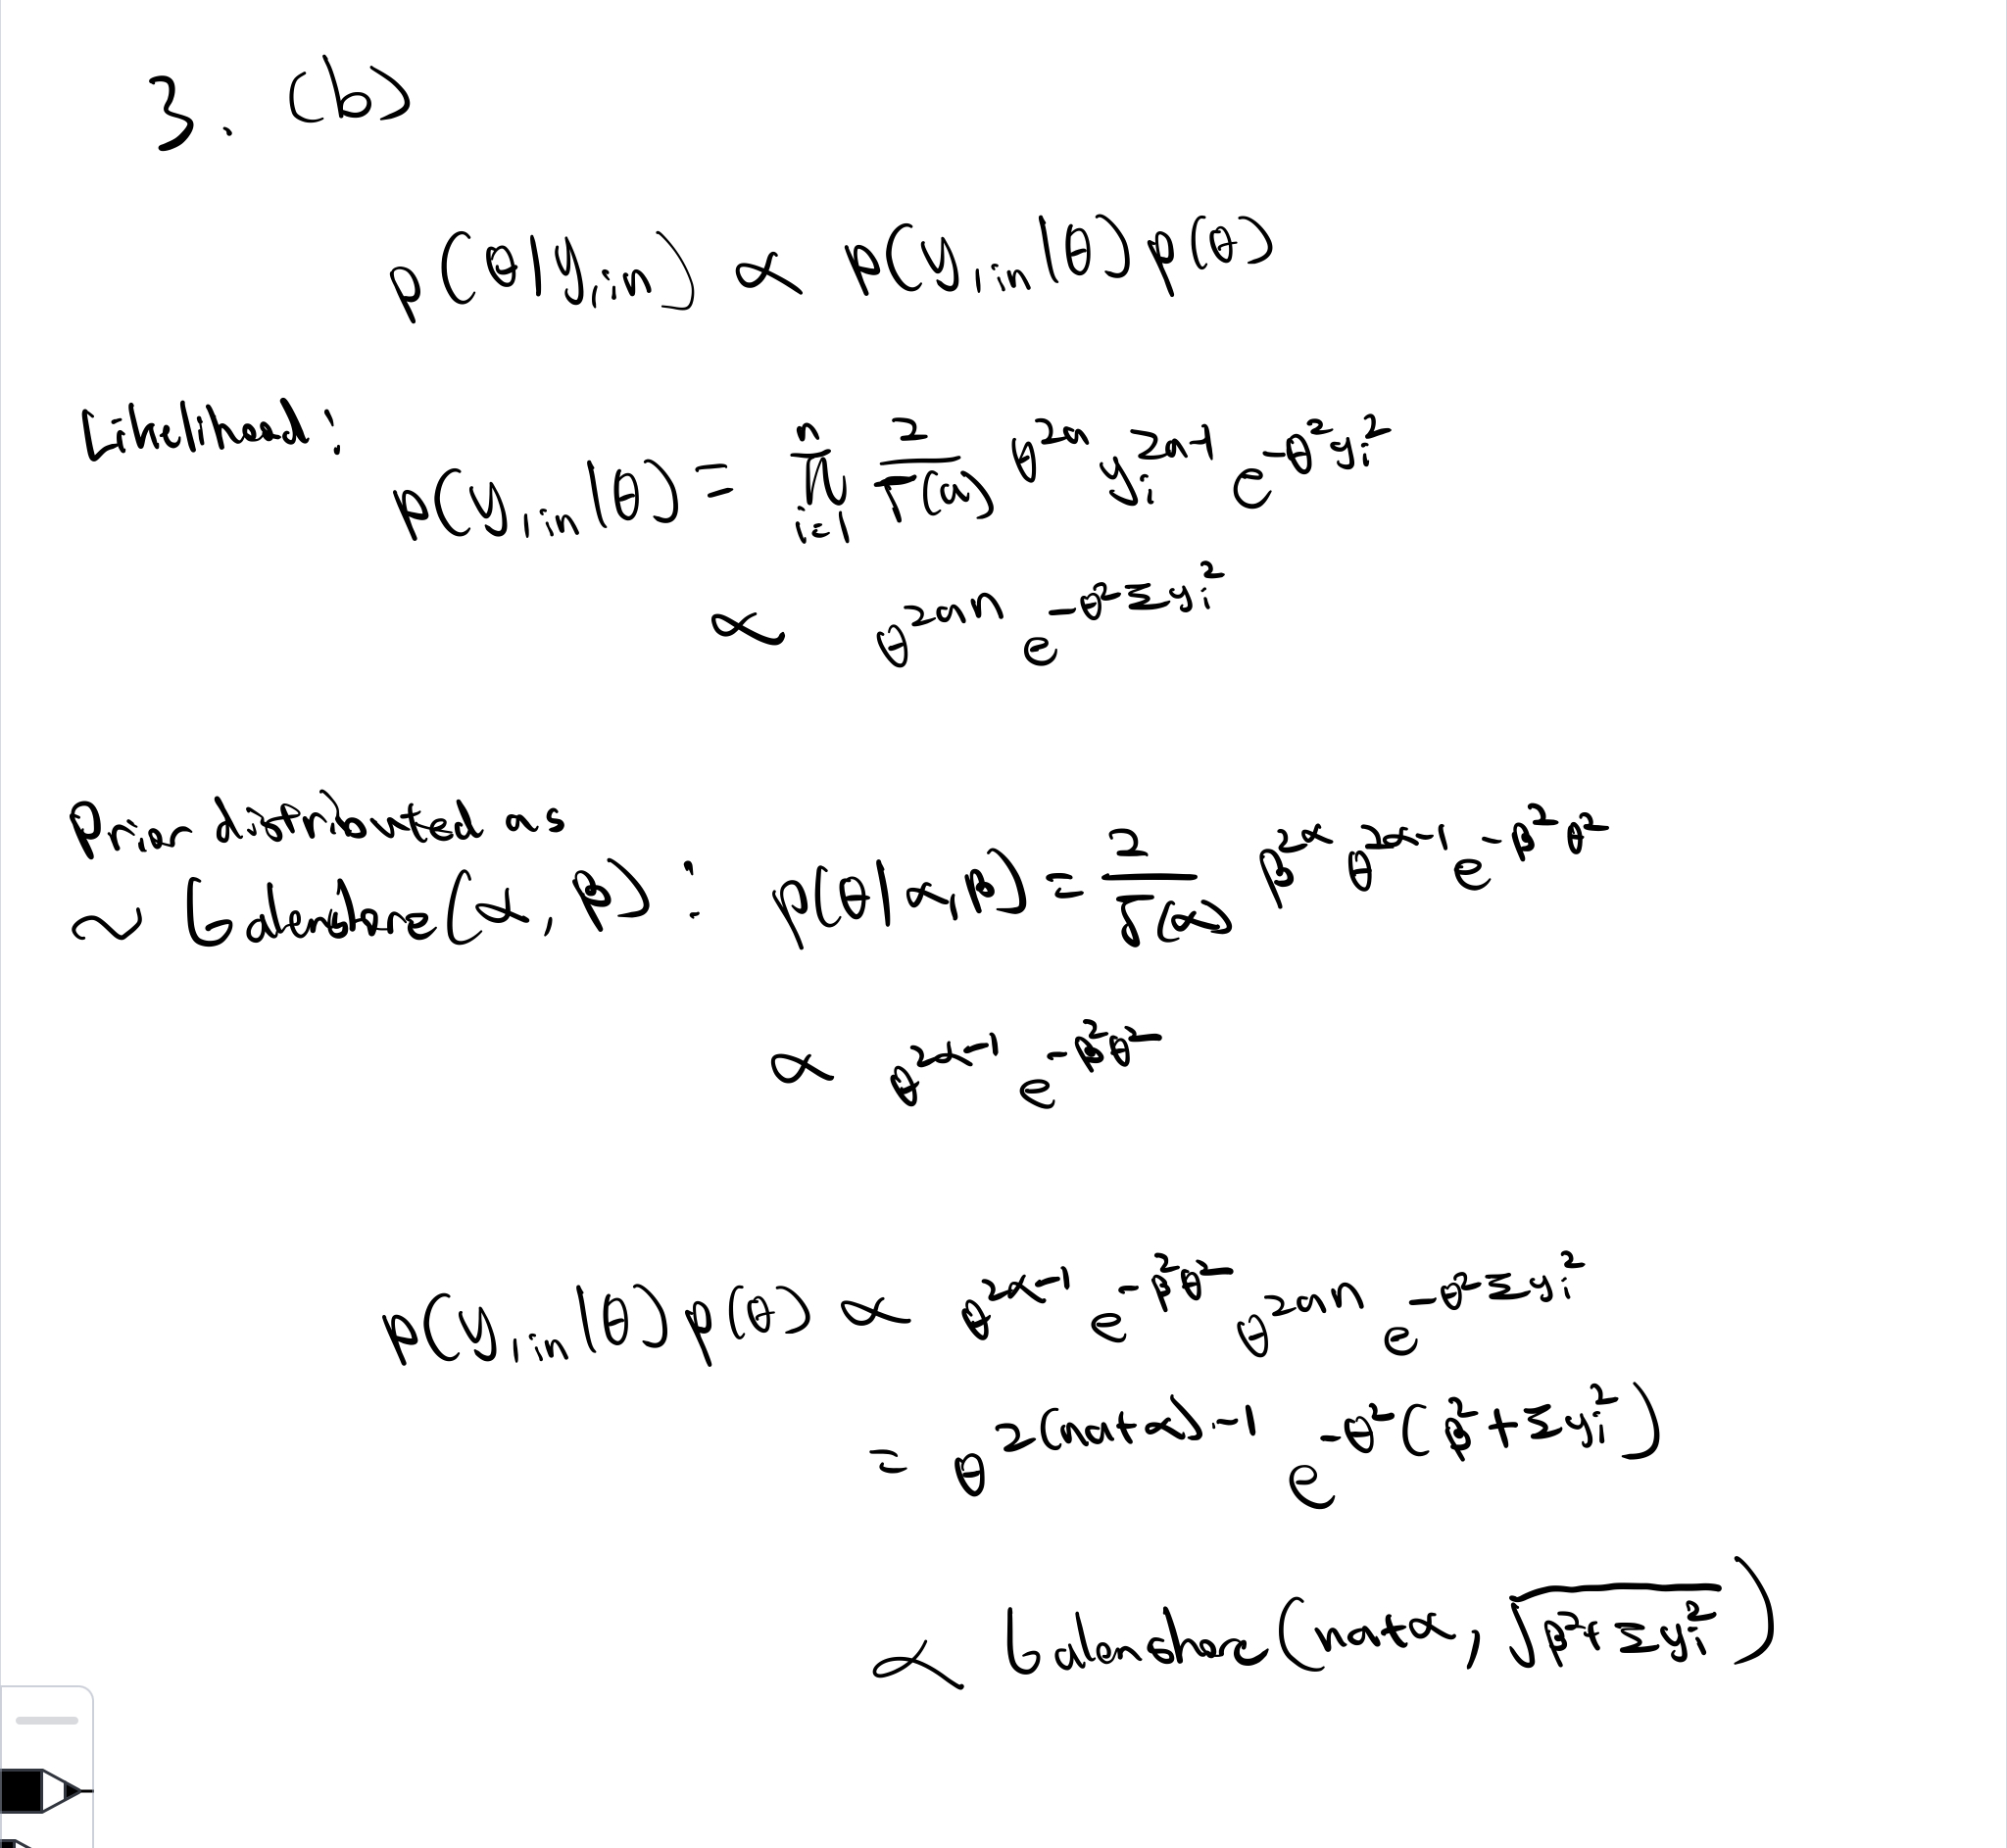 3. (b)
p(θ|y₁:n) ∝ p(y₁:n|θ)p(θ)
Likelihood:
p(y₁:n|θ) = ∏ᵢ₌₁ⁿ 2/Γ(a) θ^{2a} yᵢ^{2a-1} e^{-θ²yᵢ²}
∝ θ^{2an} e^{-θ²Σyᵢ²}
Prior distributed as
~ Galenshore(α, β): p(θ|α,β) = 2/Γ(α) β^{2α} θ^{2α-1} e^{-β²θ²}
∝ θ^{2α-1} e^{-β²θ²}
p(y₁:n|θ)p(θ) ∝ θ^{2α-1} e^{-β²θ²} θ^{2an} e^{-θ²Σyᵢ²}
= θ^{2(na+α)-1} e^{-θ²(β²+Σyᵢ²)}
∝ Galenshore(na+α, √(β²+Σyᵢ²))